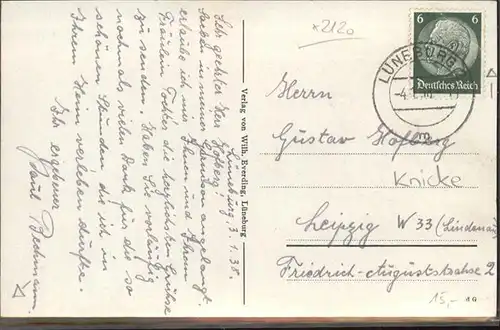 Lüneburg, 3.1.38.
Sehr geehrter Herr Hofberg!
Habe in meiner Garnison angelangt
erlaube ich mir Ihnen und Ihrem
Fräulein Tochter die herzlichsten Grüße
zu senden. Haben Sie vorläufig
nochmals vielen Dank für die so
schönen Stunden die ich in
Ihrem Heim verleben durfte.
Ihr ergebener
Paul
Verlag von Wilh. Everding, Lüneburg
x2120
6 6
Deutsches Reich
LÜNEBURG
m
Herrn
Gustav Hofberg
Knicke
Leipzig W 33 (Lindenau)
Friedrich-Auguststrasse 2
15,-
49